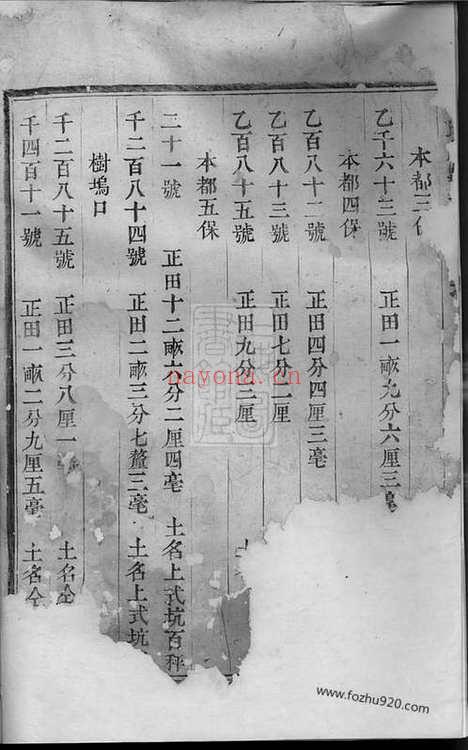 本都三保
乙千六十三號 正田一畝九分六厘三毫
本都四保
乙百八十二號 正田四分四厘三毫
乙百八十三號 正田七分二厘
乙百八十五號 正田九分三厘 土
本都五保
二十一號 正田十二畝六分二厘四毫 土名上式坑百秤
千二百八十四號 正田二畝三分七釐三毫 土名上式坑
樹塢口
千二百八十五號 正田三分八厘一 土名仝
千四百十一號 正田一畝二分九厘五毫 土名仝
nayona.cn
www.fozhu920.com